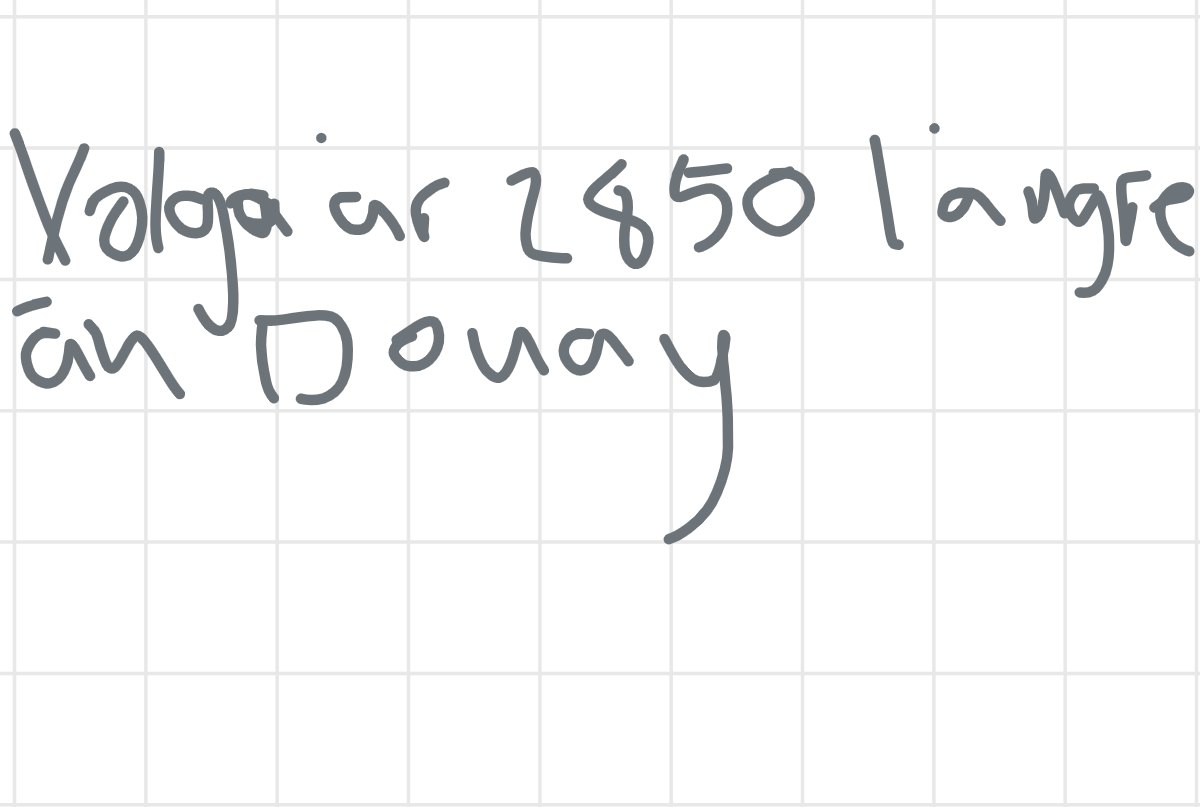 Volga är 2850 längre
än Donay